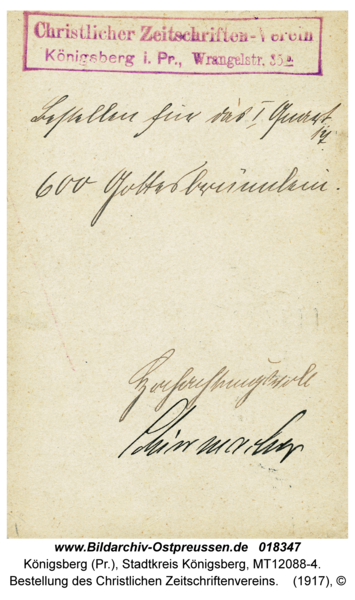 Christlicher Zeitschriften-Verein
Königsberg i. Pr., Wrangelstr. 35a.
Bestellen für das I Quart
17.
600 Gottesbrünnlein.
Hochachtungsvoll
Schirrmacher
www.Bildarchiv-Ostpreussen.de 018347
Königsberg (Pr.), Stadtkreis Königsberg, MT12088-4.
Bestellung des Christlichen Zeitschriftenvereins. (1917), ©